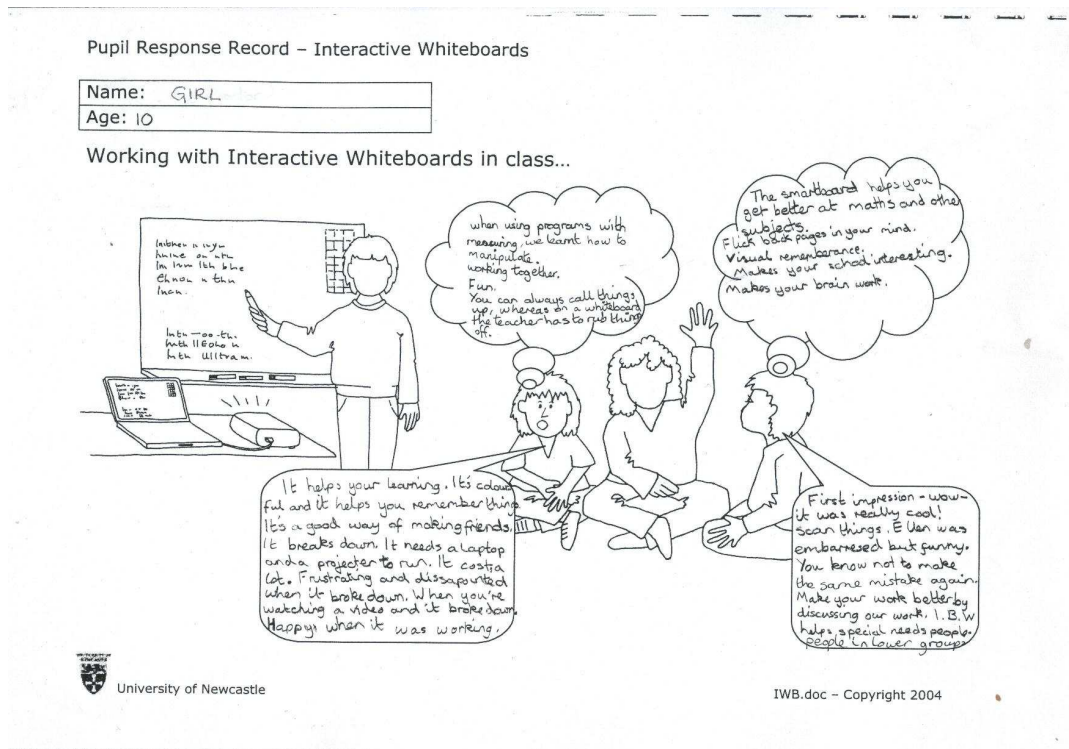 Pupil Response Record – Interactive Whiteboards
Name: GIRL
Age: 10
Working with Interactive Whiteboards in class...
when using programs with
measuring, we learnt how to
manipulate.
working together.
Fun.
You can always call things
up, whereas on a whiteboard
the teacher has to rub things
off.
The smartboard helps you
get better at maths and other
subjects.
Flick back pages in your mind.
Visual rememberance.
Makes your school interesting.
Makes your brain work.
It helps your learning. It's colour
ful and it helps you remember things
It's a good way of making friends.
It breaks down. It needs a laptop
and a projecter to run. It costs a
lot. Frustrating and dissapointed
when it broke down. When you're
watching a video and it broke down.
Happy, when it was working.
First impression - wow -
it was really cool!
Scan things. Ellen was
embarresed but funny.
You know not to make
the same mistake again.
Make your work better by
discussing our work. I.B.W
helps special needs people.
people in lower groups
University of Newcastle
IWB.doc – Copyright 2004